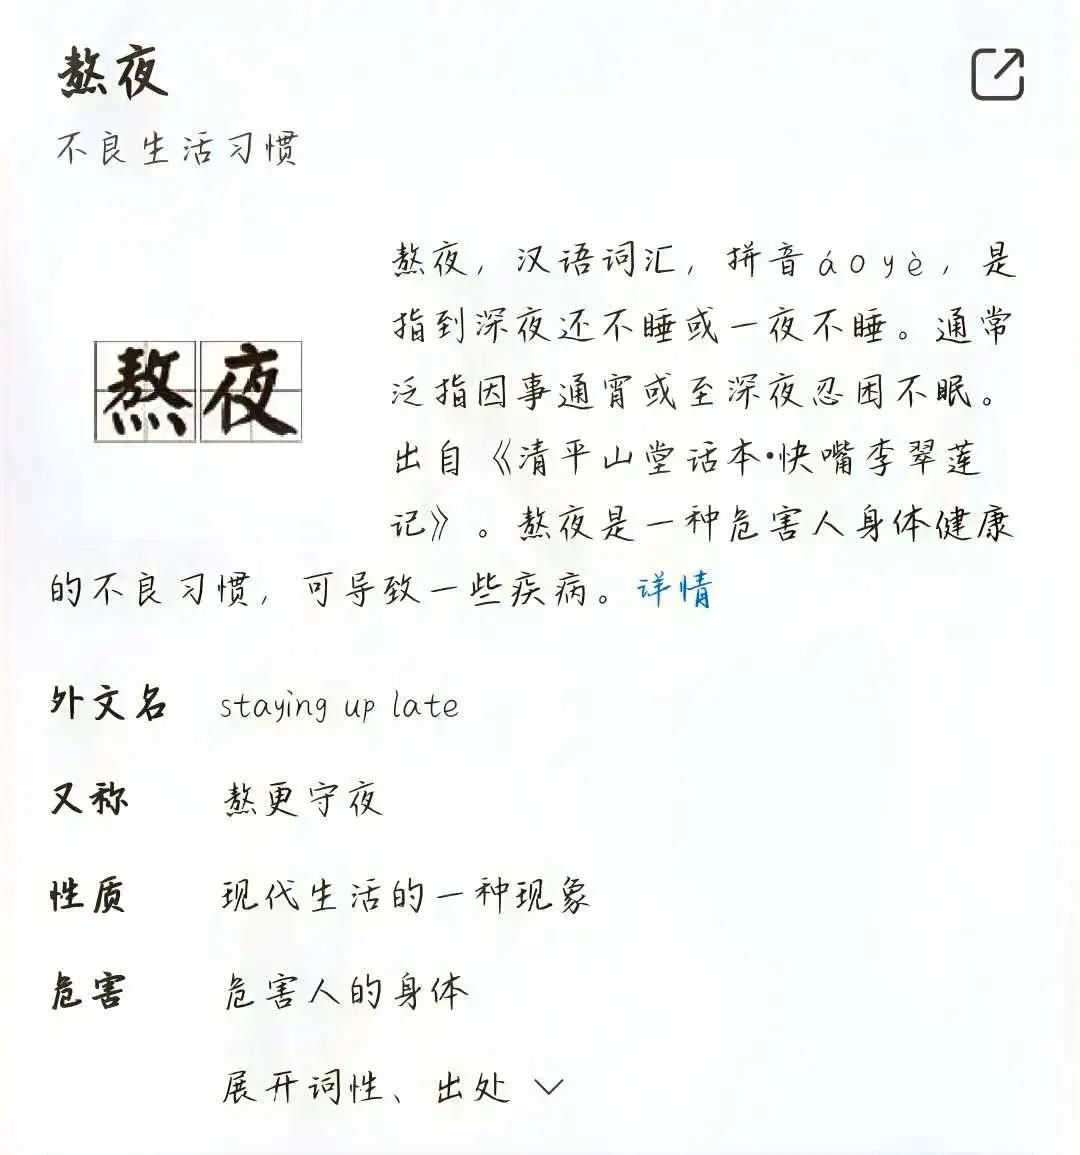 熬夜
不良生活习惯
熬夜，汉语词汇，拼音áoyè，是
指到深夜还不睡或一夜不睡。通常
泛指因事通宵或至深夜忍困不眠。
熬夜
出自《清平山堂话本•快嘴李翠莲
记》。熬夜是一种危害人身体健康
的不良习惯，可导致一些疾病。详情
外文名 staying up late
又称 熬更守夜
性质 现代生活的一种现象
危害 危害人的身体
展开词性、出处